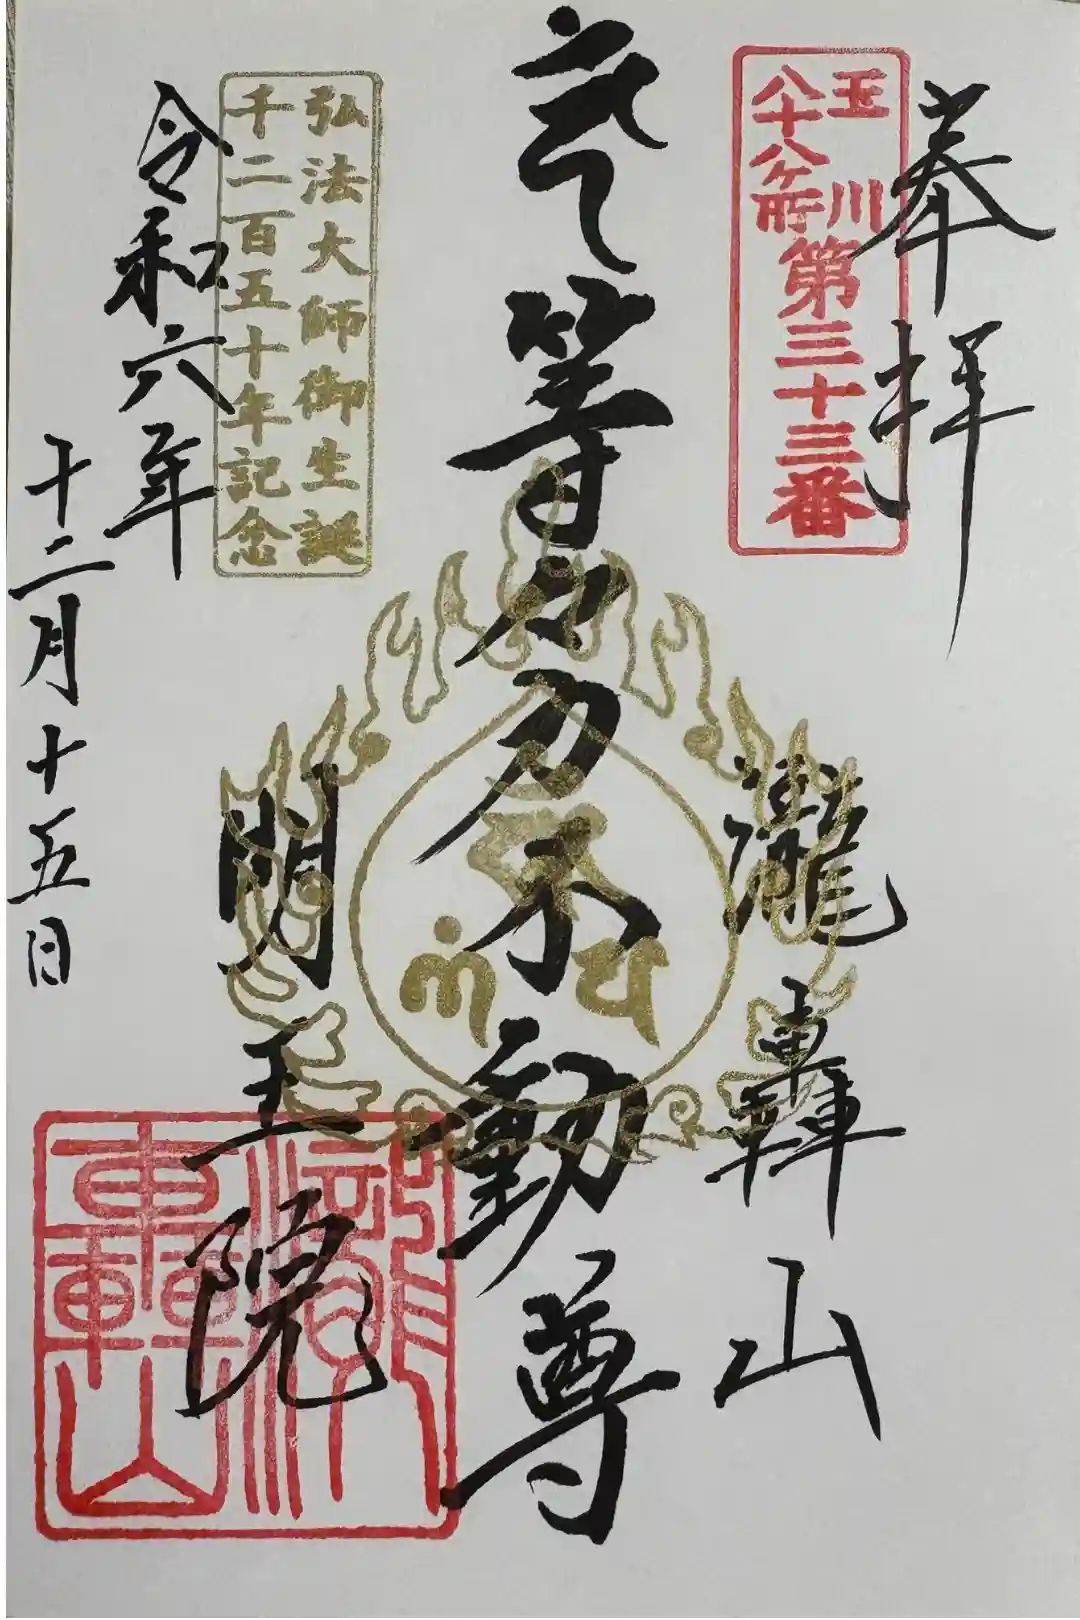 奉拝
玉川
八十八ヶ所
第三十三番
瀧轟山
等々力不動尊
明王院
弘法大師御生誕
千二百五十年記念
令和六年
十二月十五日
瀧
轟山